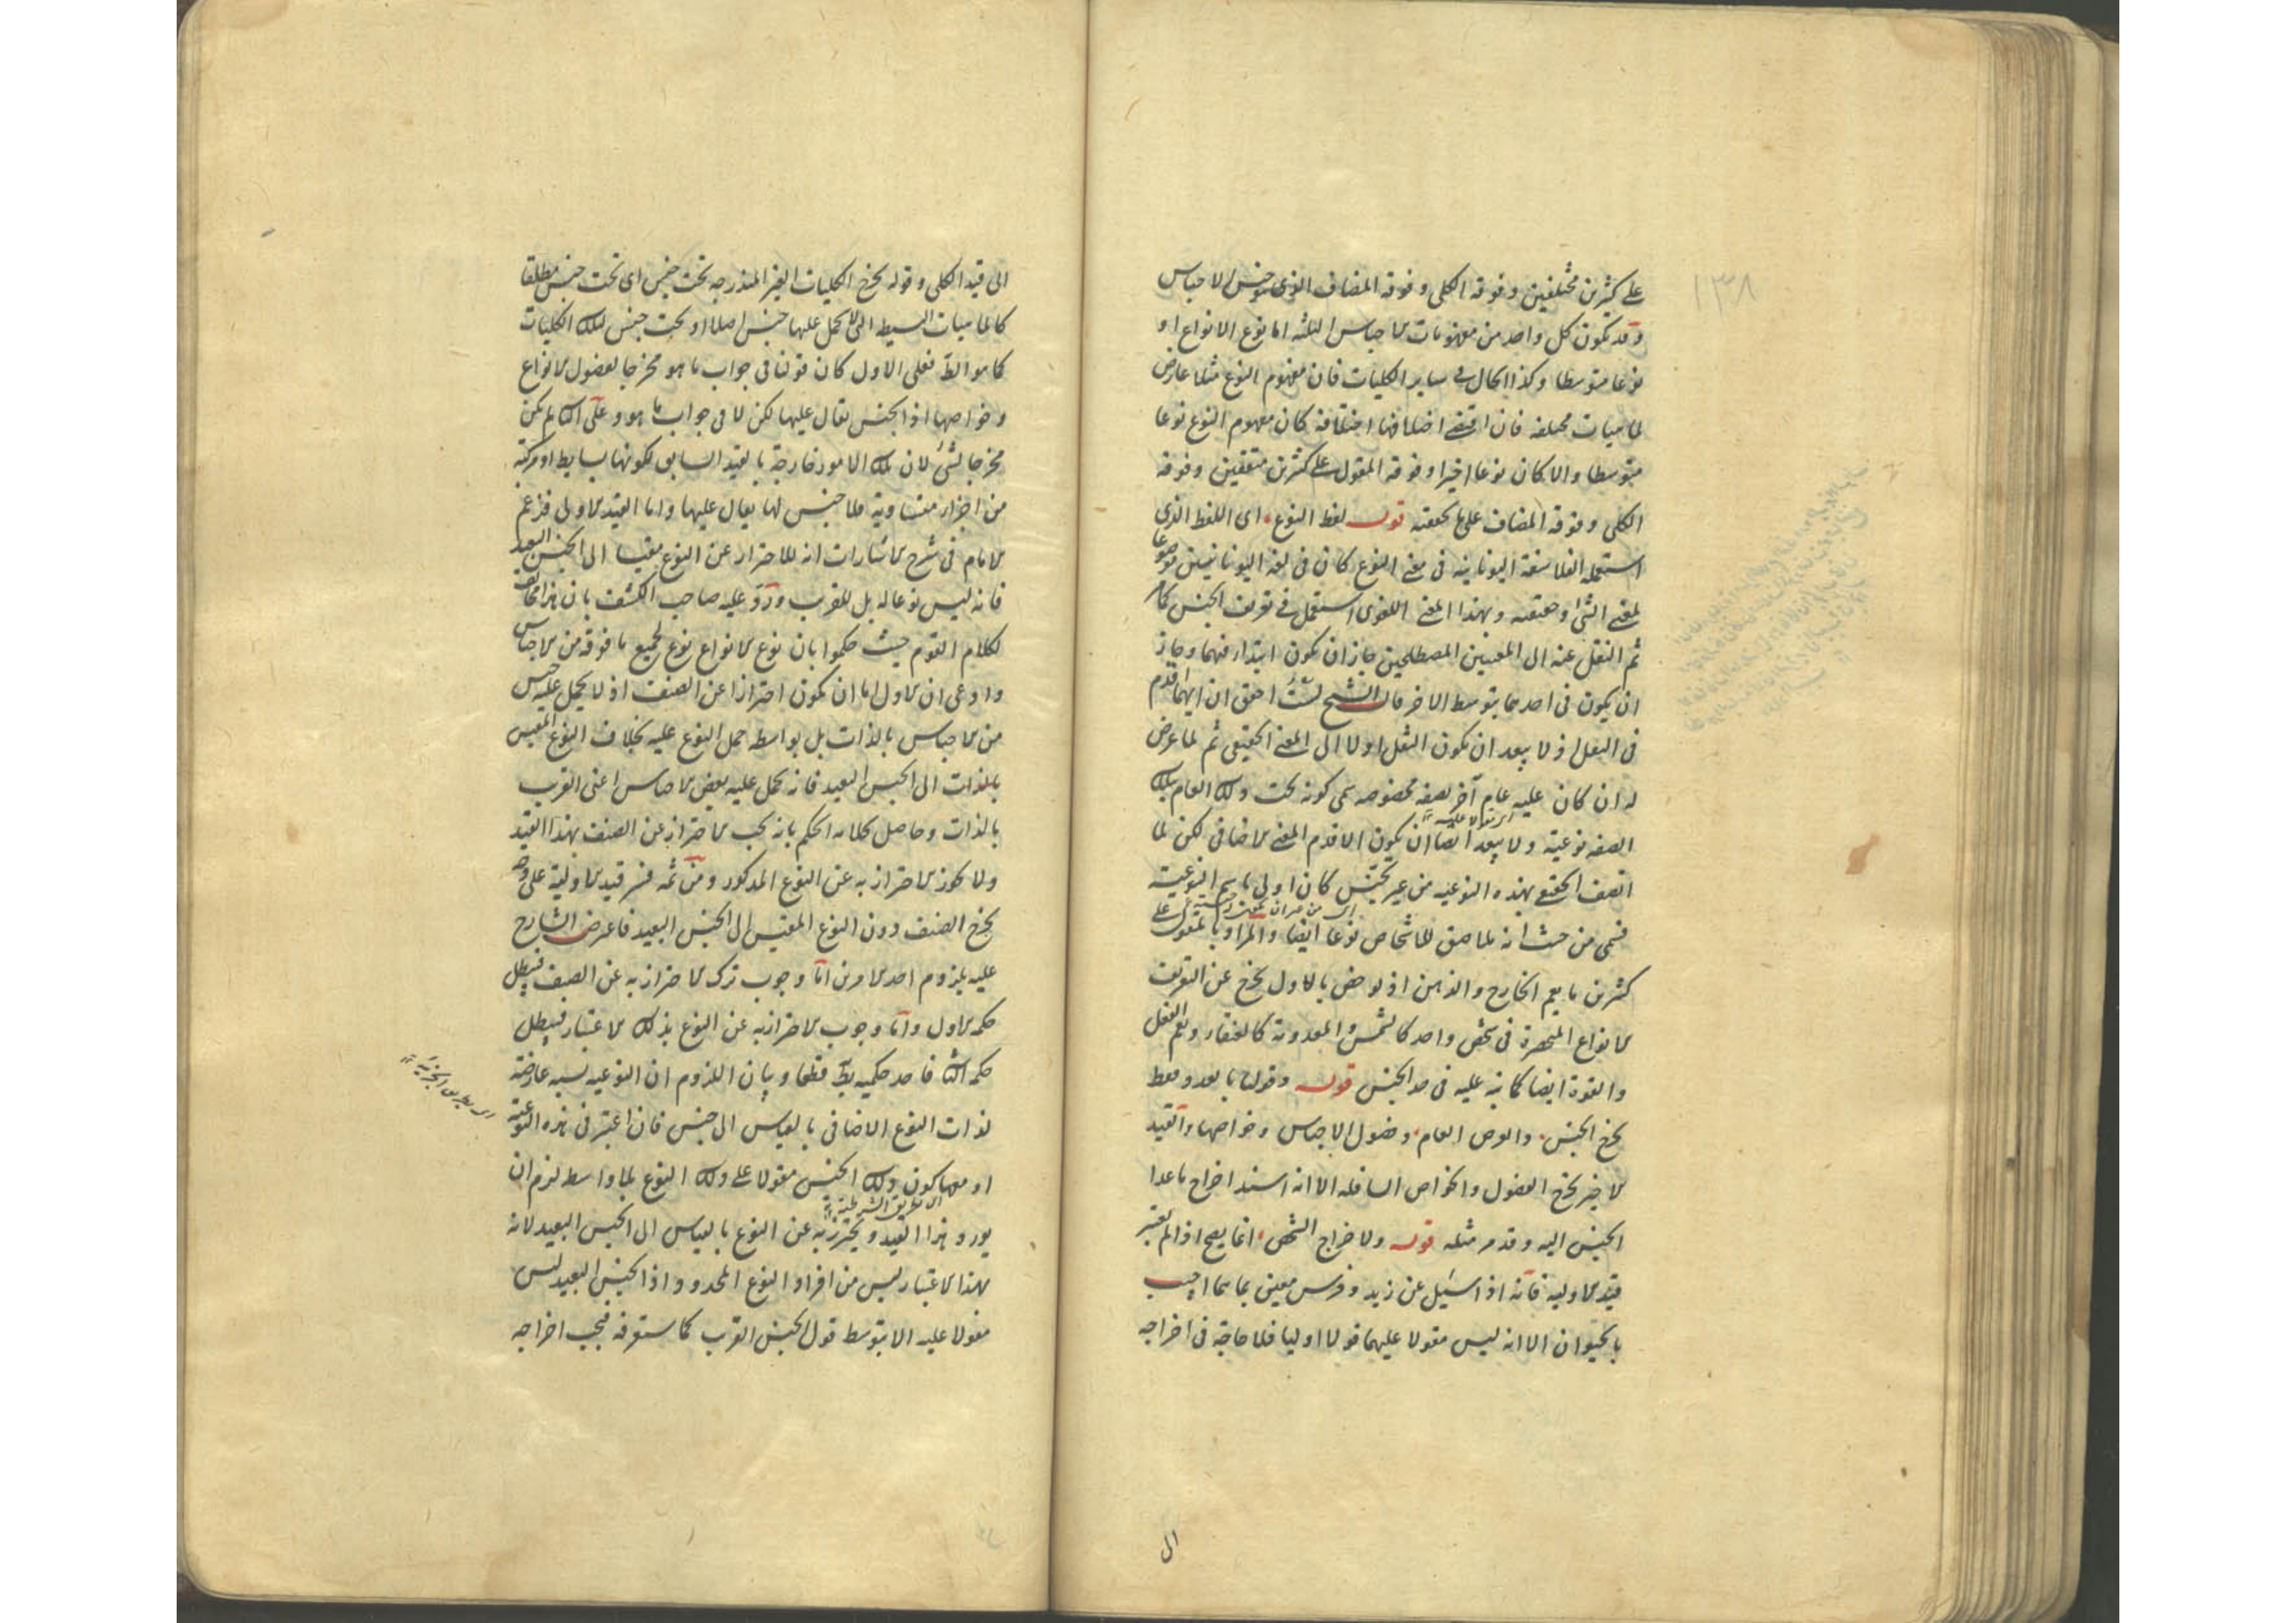 ١٣٨
على كثيرين مختلفين وفوقه الكلى وفوقه المضاف الذى هو جنس الاجناس
وقد يكون كل واحد من مفهومات الاجناس الثلثه اما نوع الانواع او
نوعا متوسطا وكذا الحال فى ساير الكليات فان مفهوم النوع مثلا عارض
لماهيات مختلفه فان اقتضى اختلافها اختلافه كان مفهوم النوع نوعا
متوسطا والا كان نوعا اخيرا وفوقه المقول على كثيرين متفقين وفوقه
الكلى وفوقه المضاف على ما تحققته قوله لفظ النوع اى اللفظ الذى
استعمله الفلاسفة اليونانيه فى معنى النوع كان فى لغة اليونانيين موضوعا
لمعنى الشئ وحقيقته وبهذا المعنى اللغوى استعمل فى تعريف الجنس كما مر
ثم النقل عنه الى المعنيين المصطلحين جاز ان يكون ابتداء فيهما وجاز
ان يكون فى احدهما بتوسط الاخر قال الشيخ لست احقق ان ايهما اقدم
فى النقل اذ لا يبعد ان يكون النقل اولا الى المعنى الحقيقى ثم لما عرض
له ان كان عليه عام آخر بصفه مخصوصه سمى كونه تحت ذلك العام بتلك
الصفه نوعية ولا يبعد ايضا ان يكون الاقدم المعنى الاضافى لكن لما
اتصف الحقيقى بهذه النوعيه من غير تجنس كان اولى باسم النوعية
فسمى من حيث انه ملاصق للاشخاص نوعا ايضا والمراد بالمقول على
كثيرين ما يعم الخارج والذهن اذ لو خص بالاول يخرج عن التعريف
الانواع المنحصرة فى شخص واحد كالشمس والمعدومة كالعنقاء ويعم الفعل
والقوة ايضا كما نبه عليه فى حد الجنس قوله وقولنا بالعدد فقط
يخرج الجنس والعرض العام وفصول الاجناس وخواصها والقيد
الاخير يخرج الفصول والخواص السافله الا انه اسند اخراج ما عدا
الجنس اليه وقد مر مثله قوله ولاخراج الشخص انما يصح اذا لم يعتبر
قيد الاوليه فانه اذا سئل عن زيد وفرس معين بما هما اجيب
بالحيوان الا انه ليس مقولا عليهما قولا اوليا فلا حاجة فى اخراجه
الى
الى قيد الكلى وقوله يخرج الكليات الغير المندرجه تحت جنس اى تحت جنس مطلقا
كالماهيات البسيطه التى لا يحمل عليها جنس اصلا او تحت جنس لتلك الكليات
كما هو الظ فعلى الاول كان قولنا فى جواب ما هو مخرجا لفصول الانواع
وخواصها اذ الجنس يقال عليها لكن لا فى جواب ما هو وعلى الثانى لم يكن
مخرجا لشئ لان تلك الامور خارجة بالقيد السابق لكونها بسايط او مركبة
من اجزاء متساوية فلا جنس لها يقال عليها واما القيد الاولى فزعم
الامام فى شرح الاشارات انه للاحتراز عن النوع مقيسا الى الجنس البعيد
فانه ليس نوعا له بل للقريب ورد عليه صاحب الكشف بان هذا مخالف
لكلام القوم حيث حكموا بان نوع الانواع نوع لجميع ما فوقه من الاجناس
وادعى ان الاول اما ان يكون احترازا عن الصنف اذ لا يحمل عليه جنس
من الاجناس بالذات بل بواسطه حمل النوع عليه بخلاف النوع المقيس
بالذات الى الجنس البعيد فانه يحمل عليه بعض الاجناس اعنى القريب
بالذات وحاصل كلامه الحكم بانه يجب الاحتراز عن الصنف بهذا القيد
ولا يجوز الاحتراز به عن النوع المذكور ومن ثمه فسر قيد الاولية على وجه
يخرج الصنف دون النوع المقيس الى الجنس البعيد فاعترض الشارح
عليه بلزوم احد الامرين اما وجوب ترك الاحتراز به عن الصنف فيبطل
حكمه الاول واما وجوب الاحتراز به عن النوع بذلك الاعتبار فيبطل
حكمه الثانى فاحد حكميه بط قطعا وبيان اللزوم ان النوعيه نسبه عارضة
لذات النوع الاضافى بالقياس الى جنس فان اعتبر فى هذه النوعية
او معها كون ذلك الجنس مقولا على ذلك النوع بلا واسطه لزم ان
يورد هذا القيد ويحترز به عن النوع بالقياس الى الجنس البعيد لانه
بهذا الاعتبار ليس من افراد النوع المحدود واذ الجنس البعيد ليس
مقولا عليه الا بتوسط قول الجنس القريب كما ستعرفه فيجب اخراجه
اى بطريق الشرطية
اى بطريق الجزئية